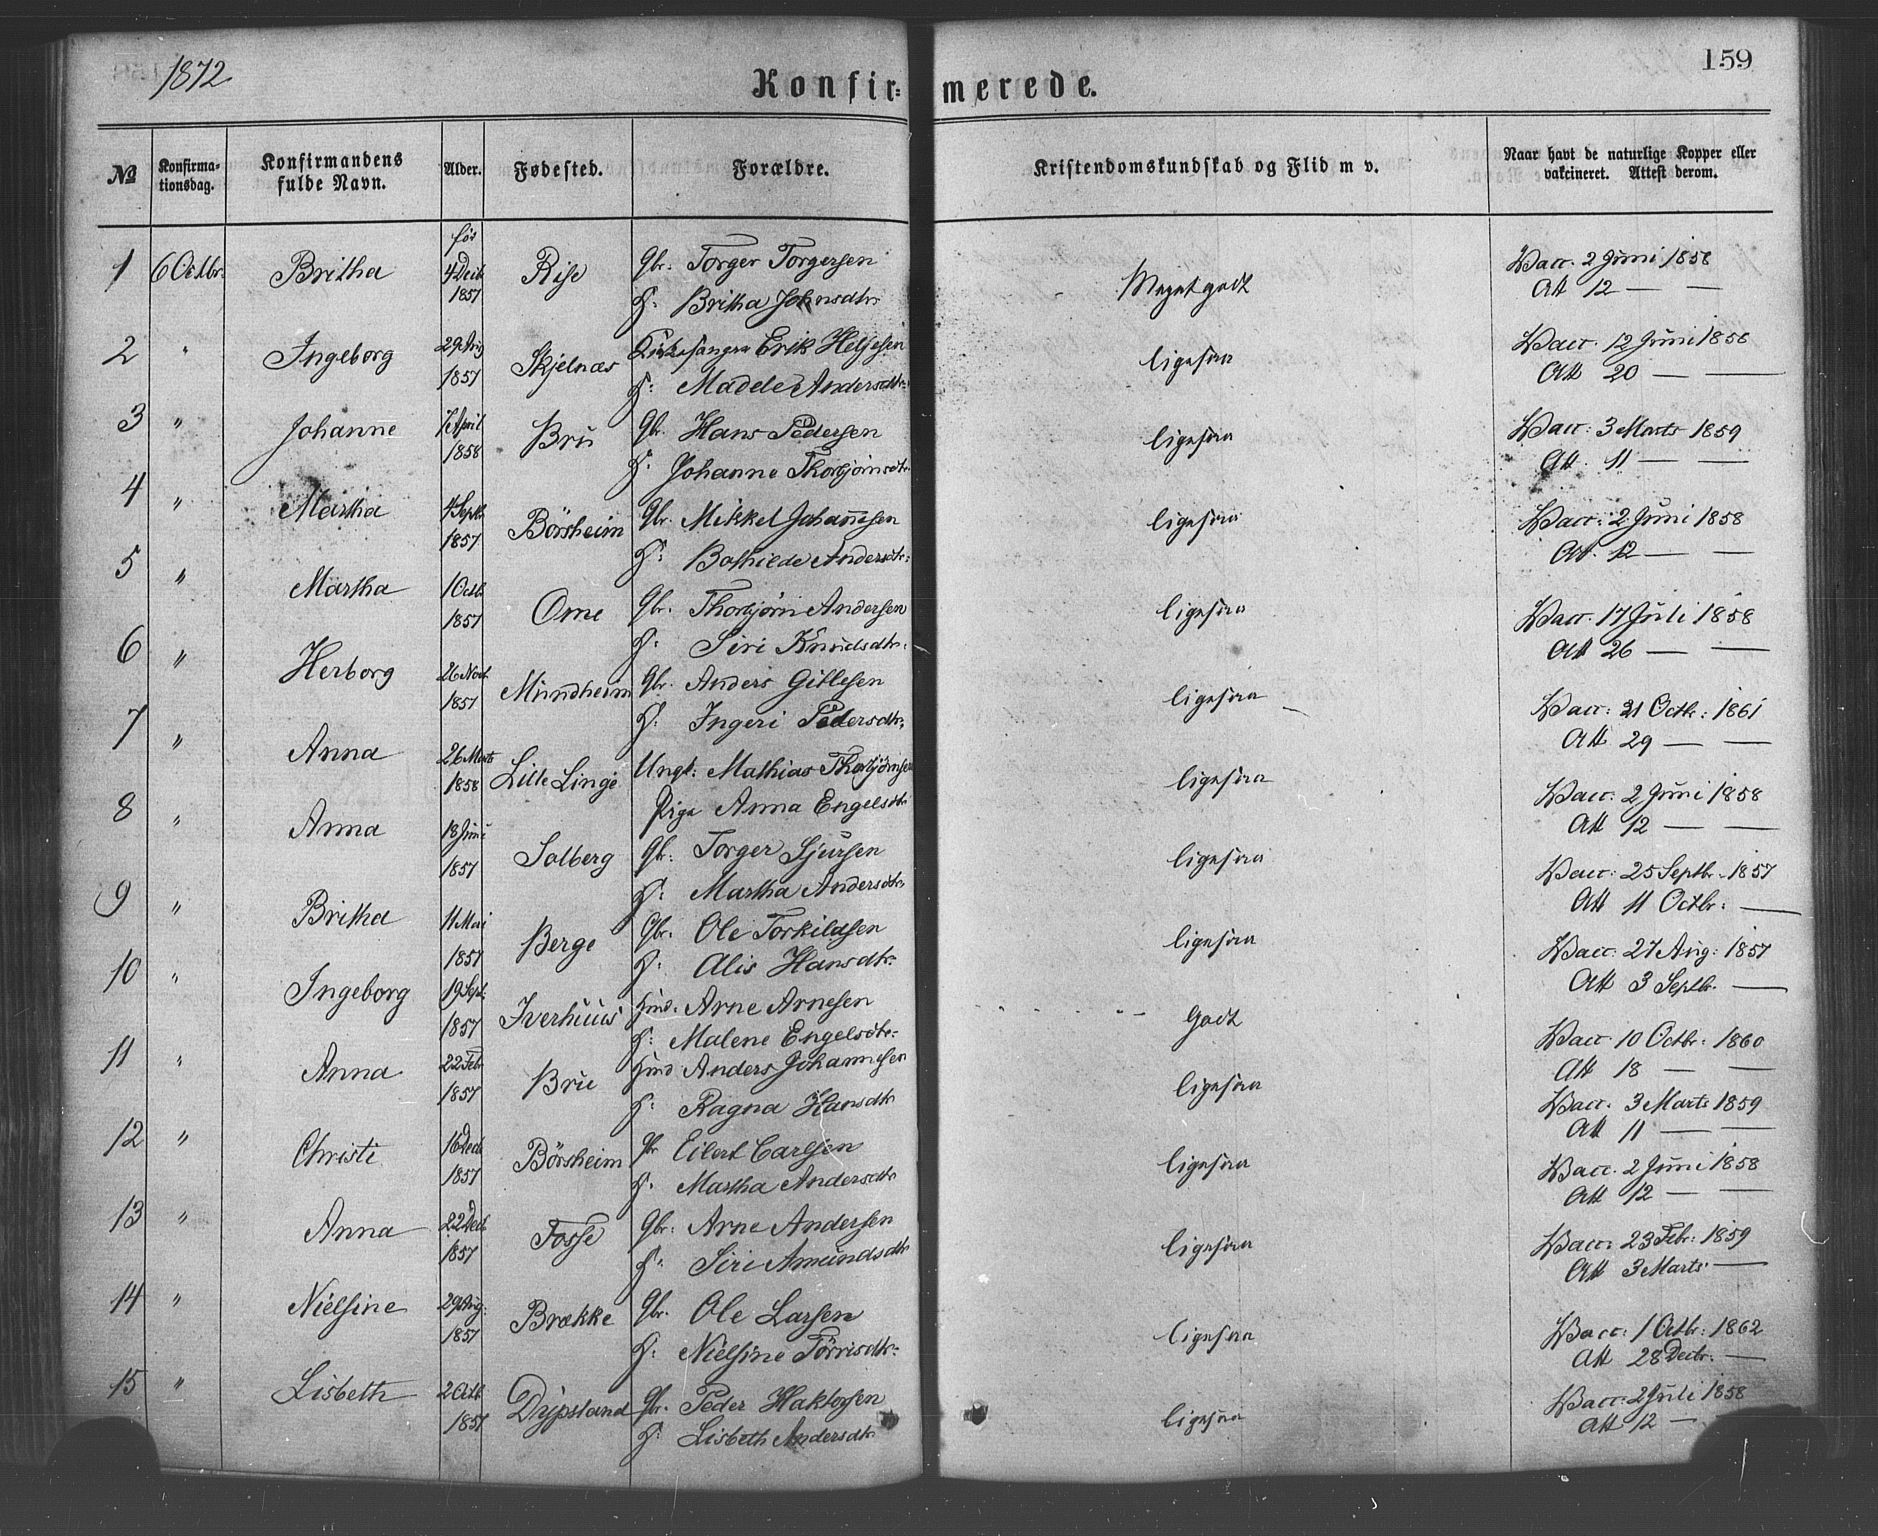 1872
159
Konfir- merede.
№ Konfirma-tionsdag. Konfirmandens fulde Navn. Alder. Fødested. Forældre. Kristendomskundskab og Flid m v. Naar havt de naturlige Kopper eller vakcineret. Attest derom.
1 6 Octbr. Britha fød 4 Decb. 1857 Rise Gbr: Torger Torgersen Meget godt Vacc. 2 Juni 1858
H: Britha Johnsdtr Att 12 — —
2 " Ingeborg 29 Aug 1857 Skjelnæs Kirkesanger Erik Heljesen ligesaa Vacc. 12 Juni 1858
H: Madele Andersdtr. Att 20 — —
3 " Johanne 7 April 1858 Bru Gbr. Hans Pedersen ligesaa Vacc: 3 Marts 1859
H: Johanne Thorbjørnsdtr. Att 11 — —
4 " Martha 4 Septbr. 1857 Börsheim Gbr. Mikkel Johannesen ligesaa Vacc: 2 Juni 1858
H: Bothilde Andersdtr: Att. 12 — —
5 " Martha 1 Octb. 1857 Ome Gbr. Thorbjörn Andersen ligesaa Vacc. 17 Juli 1858
H: Siri Knudsdtr. Att 26 — —
6 " Herborg 26 Novb. 1857 Mundheim Gbr. Anders Gitlesen ligesaa Vacc: 21 Octbr: 1861
H: Ingeri Pedersdtr. Att 29 — —
7 " Anna 26 Marts 1858 Lille Linge Ungk: Mathias Thorbjörnsen ligesaa Vacc: 2 Juni 1858
Pige Anna Engelsdtr Att 12 — —
8 " Anna 18 Juni 1857 Solberg Gbr: Torger Sjursen ligesaa Vacc: 25 Septbr. 1857
H: Martha Andersdtr. Att 11 Octbr: —
9 " Britha 11 Mai 1857 Berge Gbr. Ole Torkildsen ligesaa Vacc: 27 Aug: 1857
H: Alis Hansdtr. Att 3 Septbr. —
10 " Ingeborg 19 Sept. 1857 Iverhuus Huusmd. Arne Arnesen Godt Vacc. 10 Octbr: 1860
H: Malene Engelsdtr: Att 18 — —
11 " Anna 22 Febr 1857 Brue Huusmd Anders Johannesen ligesaa Vacc. 3 Marts 1859
H: Ragna Hansdtr Att 11 — —
12 " Christi 16 Decb 1857 Börsheim Gbr Eilert Carlsen ligesaa Vacc. 2 Juni 1858
H. Martha Andersdtr Att 12 — —
13 " Anna 22 Decb 1857 Fosse Gbr: Arne Andersen ligesaa Vacc: 23 Febr: 1859
H. Siri Amundsdtr Att 3 Marts —
14 " Nielsine 29 Aug: 1857 Brække Gbr. Ole Larsen ligesaa Vacc: 1 Octbr: 1862
H: Nielsine Törrisdtr. Att 28 Decbr. —
15 " Lisbeth 2 Octb. 1857 Drypsland Gbr. Peder Haktorsen ligesaa Vacc: 2 Juli 1858
H: Lisbeth Andersdtr Att 12 —